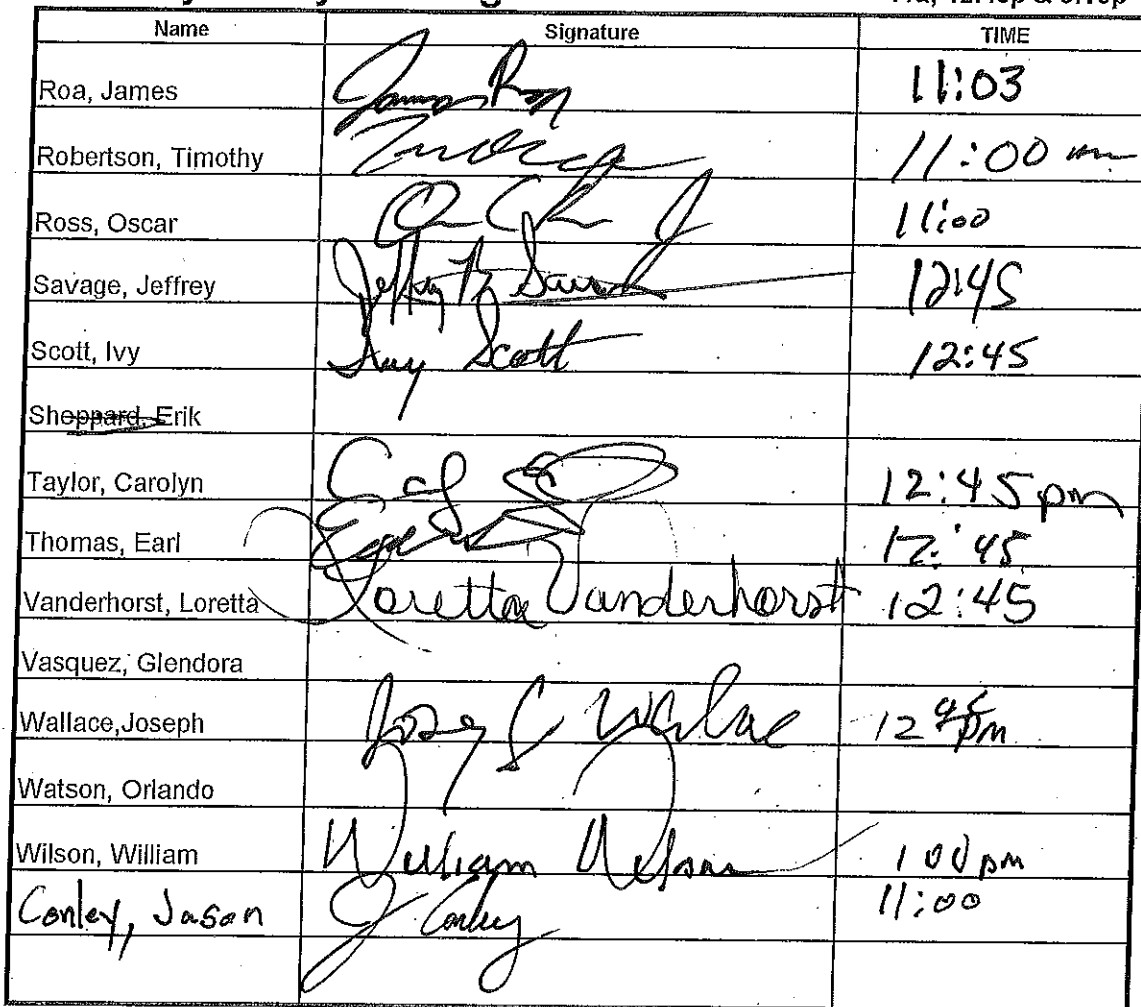 Name Signature TIME
Roa, James James Roa 11:03
Robertson, Timothy 11:00 am
Ross, Oscar 11:00
Savage, Jeffrey 12:45
Scott, Ivy Ivy Scott 12:45
Sheppard, Erik
Taylor, Carolyn 12:45 pm
Thomas, Earl 12:45
Vanderhorst, Loretta Loretta Vanderhorst 12:45
Vasquez, Glendora
Wallace,Joseph 12 45 pm
Watson, Orlando
Wilson, William William Wilson 1 00 pm
Conley, Jason J Conley 11:00